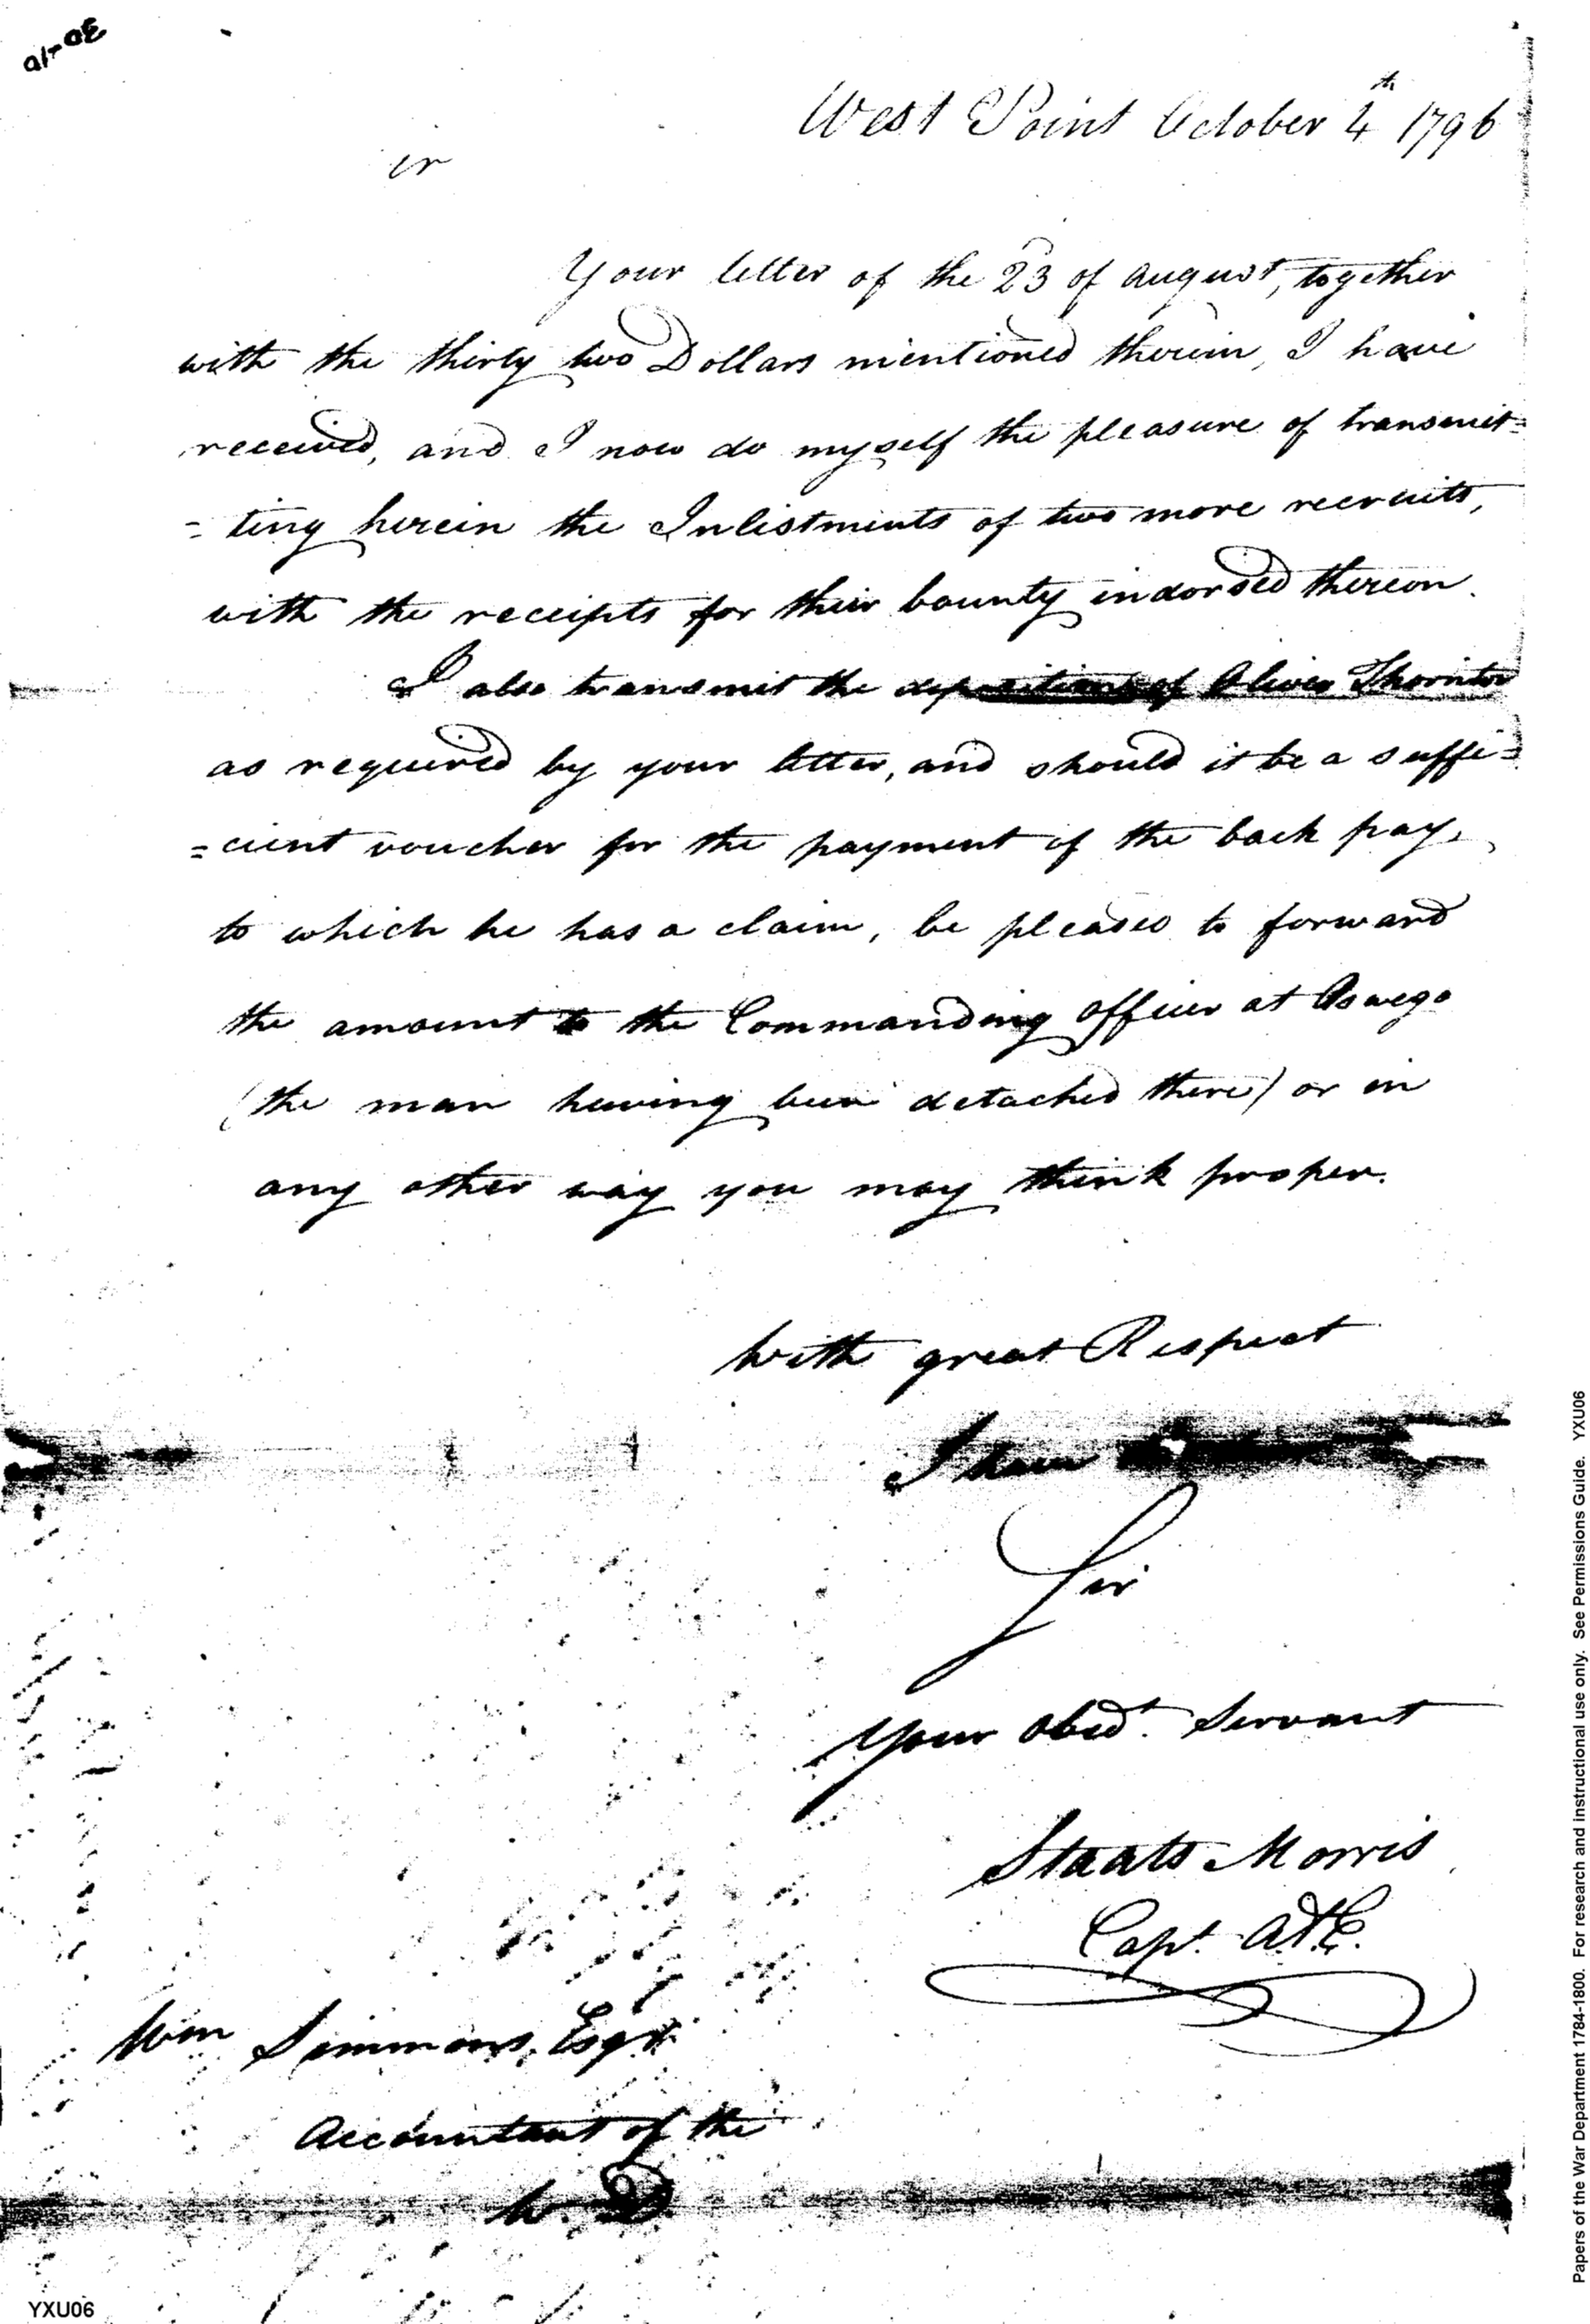 West Point October 4th 1796
ir
Your letter of the 23 of August, together
with the thirty two Dollars mentioned therein, I have
received, and I now do myself the pleasure of transmit=
= ting herein the Inlistments of two more recruits,
with the receipts for their bounty indorsed thereon.
I also transmit the deposition of Oliver Thornton
as required by your letter, and should it be a suffi=
= cient voucher for the payment of the back pay,
to which he has a claim, be pleased to forward
the amount to the Commanding Officer at Oswego
(the man having been detached there) or in
any other way you may think proper.
With great Respect
I have
Sir
Your Obedt. Servant
Staats Morris
Capt. A&E.
Wm Simmons, Esqr.
Accountant of the
W. D.
Papers of the War Department 1784-1800. For research and instructional use only. See Permissions Guide. YXU06
YXU06